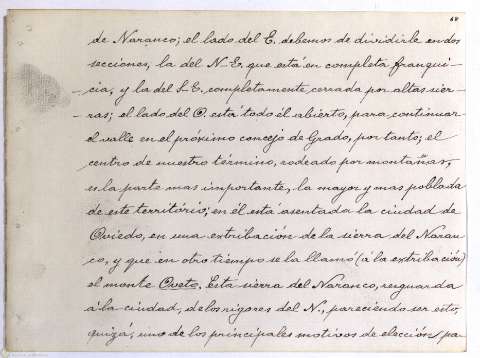 68
de Naranco; el lado del E. debemos de dividirle en dos
secciones, la del N-E. que está en completa franqui-
cia, y la del S-E. completamente cerrada por altas sier-
ras; el lado del O. está todo él abierto, para continuar
el valle en el próximo concejo de Grado, por tanto; el
centro de nuestro término, rodeado por montañas,
es la parte mas importante, la mayor y mas poblada
de este territorio; en él está asentada la ciudad de
Oviedo, en una extribación de la sierra del Naran-
co, y que en otro tiempo se la llamó (á la extribación)
el monte Oveto. Esta sierra del Naranco, resguarda
á la ciudad, de los rigores del N., pareciendo ser esto,
quizá, uno de los principales motivos de elección, pa